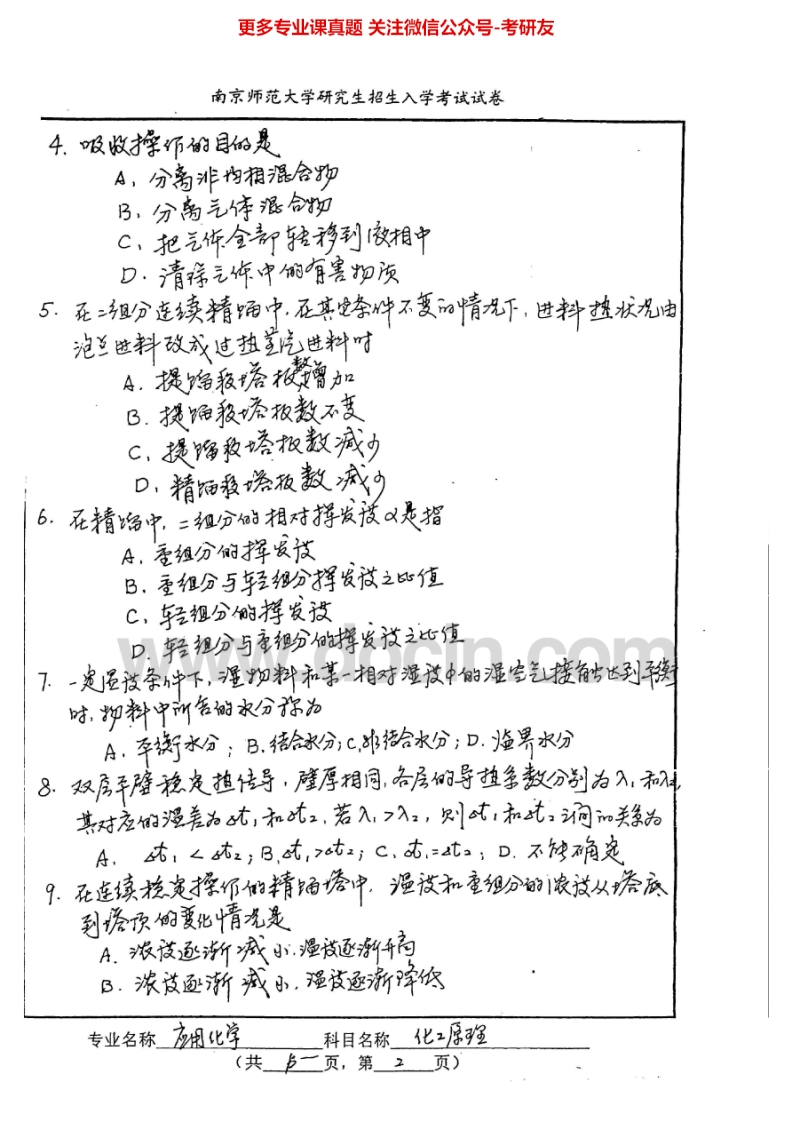 更多专业课真题 关注微信公众号-考研友
南京师范大学研究生招生入学考试试卷
4. 吸收操作的目的是
A. 分离非均相混合物
B. 分离气体混合物
C. 把气体全部转移到液相中
D. 清除气体中的有害物质
5. 在二组分连续精馏中,在其它条件不变的情况下,进料热状况由
泡点进料改成过热蒸汽进料时
A. 提馏段塔板数增加
B. 提馏段塔板数不变
C. 提馏段塔板数减少
D. 精馏段塔板数减少
6. 在精馏中,二组分的相对挥发度α是指
A. 重组分的挥发度
B. 重组分与轻组分挥发度之比值
C. 轻组分的挥发度
D. 轻组分与重组分的挥发度之比值
www.docin.com
7. 一定温度条件下,湿物料和某一相对湿度φ的湿空气接触达到平衡
时,物料中所含的水分称为
A. 平衡水分; B. 结合水分; C. 非结合水分; D. 临界水分
8. 双层平壁稳定热传导,壁厚相同,各层的导热系数分别为λ1和λ2,
其对应的温差为Δt1和Δt2,若λ1>λ2,则Δt1和Δt2之间的关系为
A. Δt1<Δt2; B. Δt1>Δt2; C. Δt1=Δt2; D. 不能确定
9. 在连续稳定操作的精馏塔中,温度和重组分的浓度从塔底
到塔顶的变化情况是
A. 浓度逐渐减小,温度逐渐升高
B. 浓度逐渐减小,温度逐渐降低
专业名称 应用化学 科目名称 化工原理
(共 页,第 2 页)